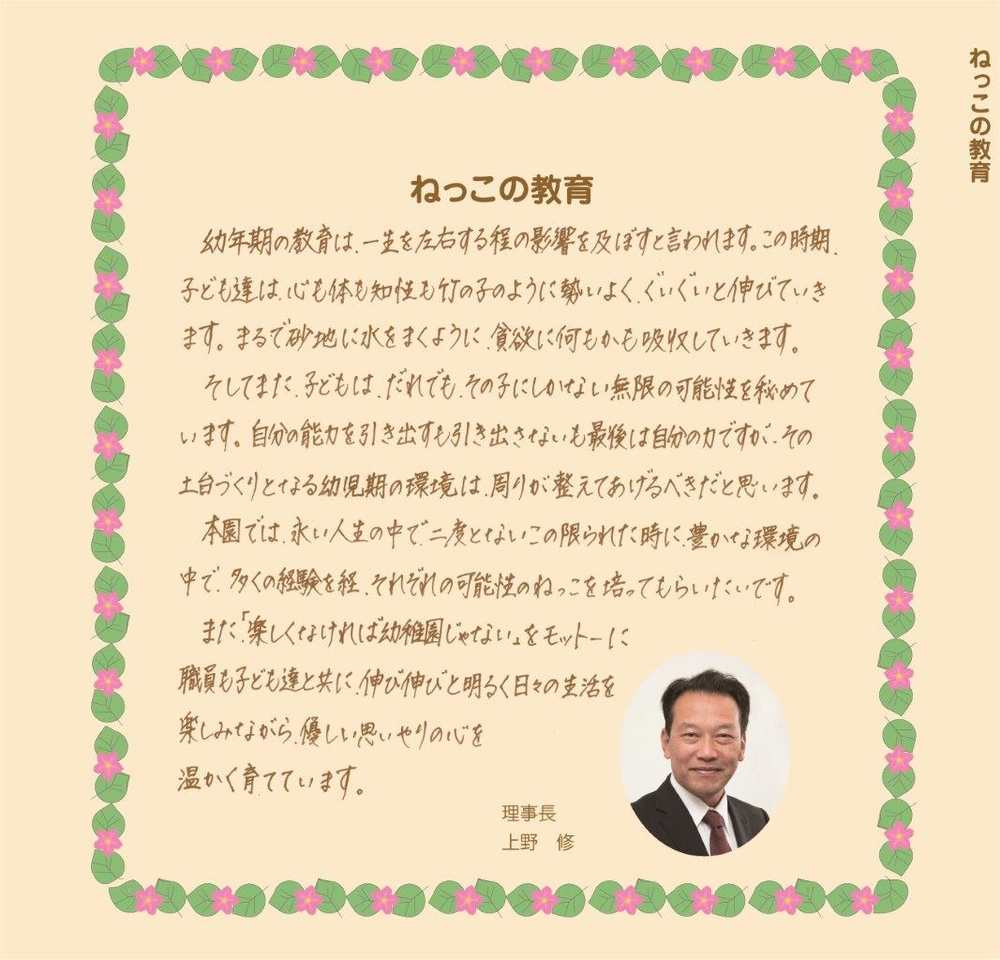 ねっこの教育
ねっこの教育
幼年期の教育は、一生を左右する程の影響を及ぼすと言われます。この時期、
子ども達は、心も体も知性も竹の子のように勢いよく、ぐいぐいと伸びていき
ます。まるで砂地に水をまくように、貪欲に何もかも吸収していきます。
そしてまた、子どもは、だれでも、その子にしかない無限の可能性を秘めて
います。自分の能力を引き出すも引き出さないも最後は自分の力ですが、その
土台づくりとなる幼児期の環境は、周りが整えてあげるべきだと思います。
本園では、永い人生の中で、二度とないこの限られた時に、豊かな環境の
中で、多くの経験を経、それぞれの可能性のねっこを培ってもらいたいです。
また、「楽しくなければ幼稚園じゃない」をモットーに
職員も子ども達と共に、伸び伸びと明るく日々の生活を
楽しみながら、優しい思いやりの心を
温かく育てています。
理事長
上野　修